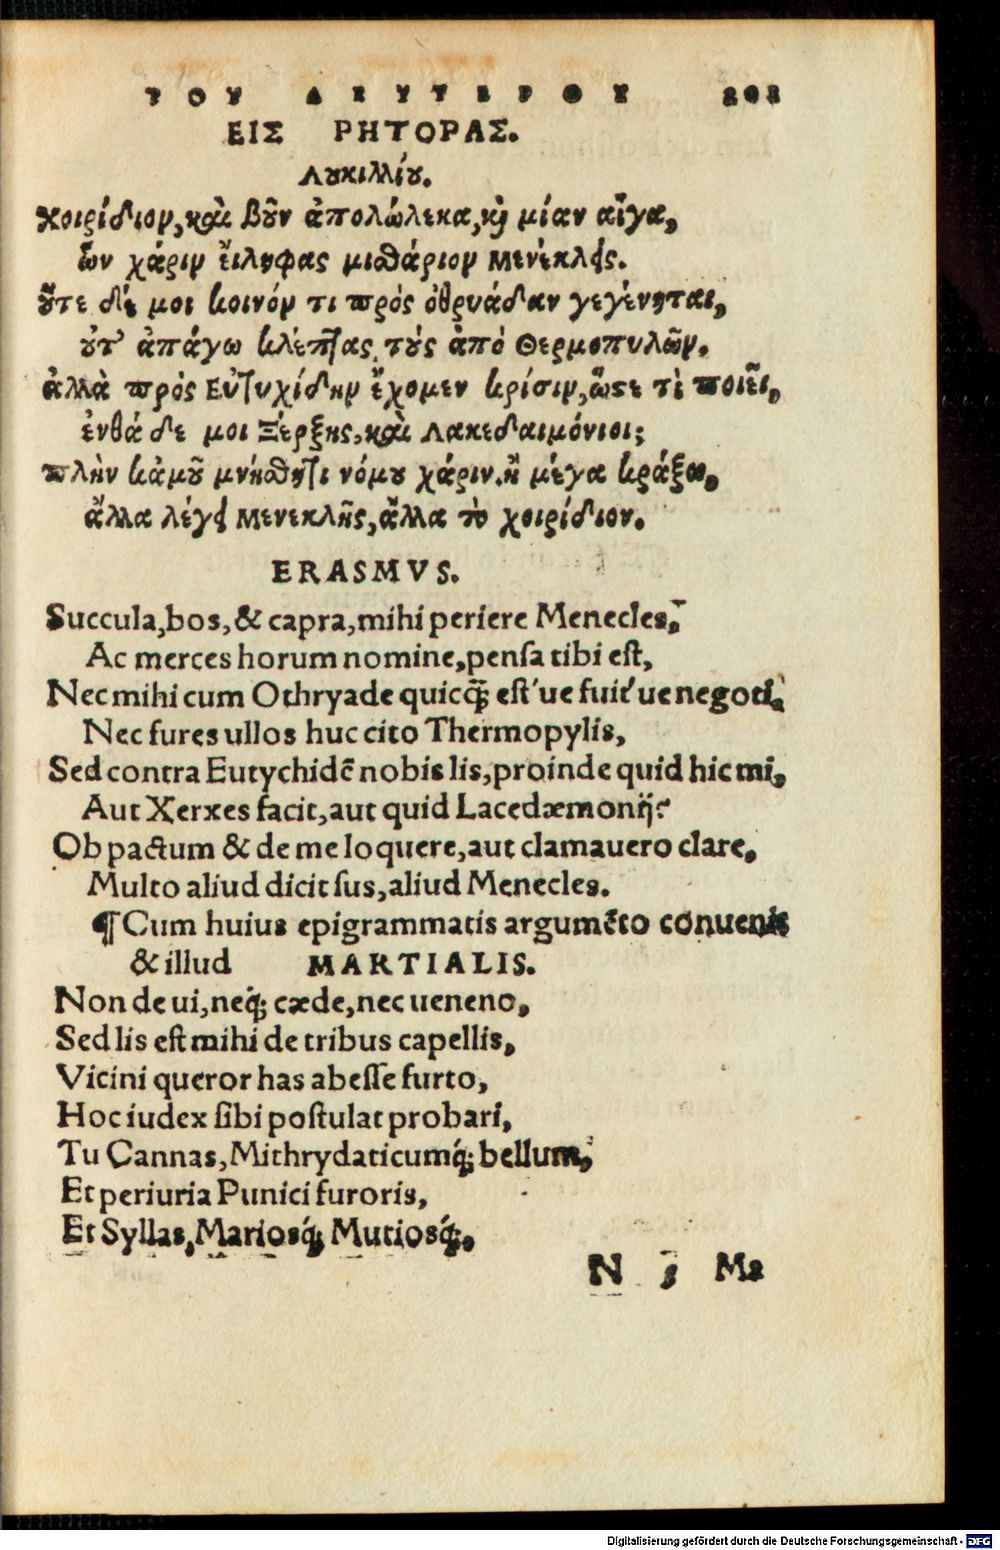 ΤΟΥ ΔΕΥΤΕΡΟΥ 202
ΕΙΣ ΡΗΤΟΡΑΣ.
Λουκιλλίου.
Χοιρίδιον, καὶ βοῦν ἀπολώλεκα, καὶ μίαν αἶγα,
ὧν χάριν εἴληφας μισθάριον Μενέκλεις.
οὔτε δέ μοι κοινόν τι πρὸς ὀθρυάδαν γεγένηται,
οὐτ' ἀπάγω κλέπτας τοὺς ἀπὸ Θερμοπυλῶν.
ἀλλὰ πρὸς Εὐτυχίδην ἔχομεν κρίσιν, ὥστε τὶ ποιεῖ,
ἐνθά δε μοι Ξέρξης, καὶ Λακεδαιμόνιοι;
πλὴν κἀμοῦ μνήσθητι νόμου χάριν. ἢ μέγα κράξω,
ἄλλα λέγει Μενεκλῆς, ἄλλα τὸ χοιρίδιον.
ERASMVS.
Succula, bos, & capra, mihi periere Menecles,
Ac merces horum nomine, pensa tibi est,
Nec mihi cum Othryade quicq̃ est 've fuit' ue negoti,
Nec fures ullos huc cito Thermopylis,
Sed contra Eutychidẽ nobis lis, proinde quid hic mi,
Aut Xerxes facit, aut quid Lacedæmonij?
Ob pactum & de me loquere, aut clamauero clare,
Multo aliud dicit sus, aliud Menecles.
¶ Cum huius epigrammatis argumẽto conuenit
& illud MARTIALIS.
Non de ui, neq; cæde, nec ueneno,
Sed lis est mihi de tribus capellis,
Vicini queror has abesse furto,
Hoc iudex sibi postulat probari,
Tu Cannas, Mithrydaticumq; bellum,
Et periuria Punici furoris,
Et Syllas, Mariosq; Mutiosq;.
N 3 Ma
Digitalisierung gefördert durch die Deutsche Forschungsgemeinschaft - DFG